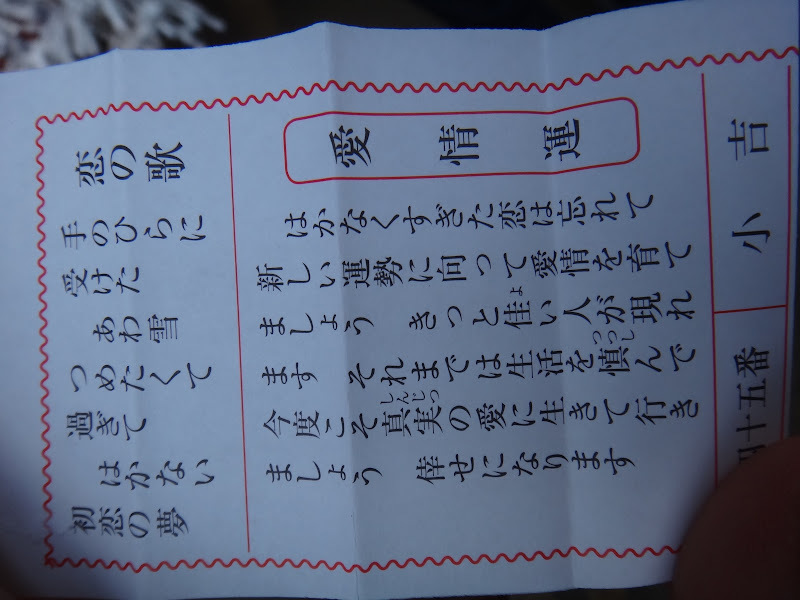 恋の歌
手のひらに
受けた
あわ雪
つめたくて
過ぎて
はかない
初恋の夢
愛情運
はかなくすぎた恋は忘れて
新しい運勢に向って愛情を育て
ましょう きっと佳い人が現れ
ます それまでは生活を慎んで
今度こそ真実の愛に生きて行き
ましょう 倖せになります
十五番
小吉